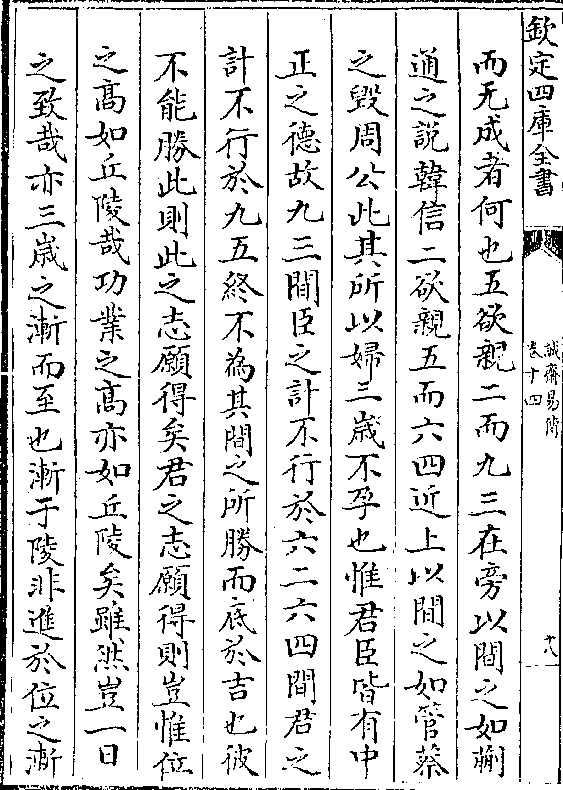 欽定四庫全書
誠齋易傳
卷十四
十八
而无成者何也五欲親二而九三在旁以間之如蒯
通之説韓信二欲親五而六四近上以間之如管蔡
之毀周公此其所以婦三歳不孕也惟君臣皆有中
正之德故九三間臣之計不行於六二六四間君之
計不行於九五終不為其間之所勝而底於吉也彼
不能勝此則此之志願得矣君之志願得則豈惟位
之髙如丘陵哉功業之髙亦如丘陵矣雖然豈一日
之致哉亦三歳之漸而至也漸于陵非進於位之漸